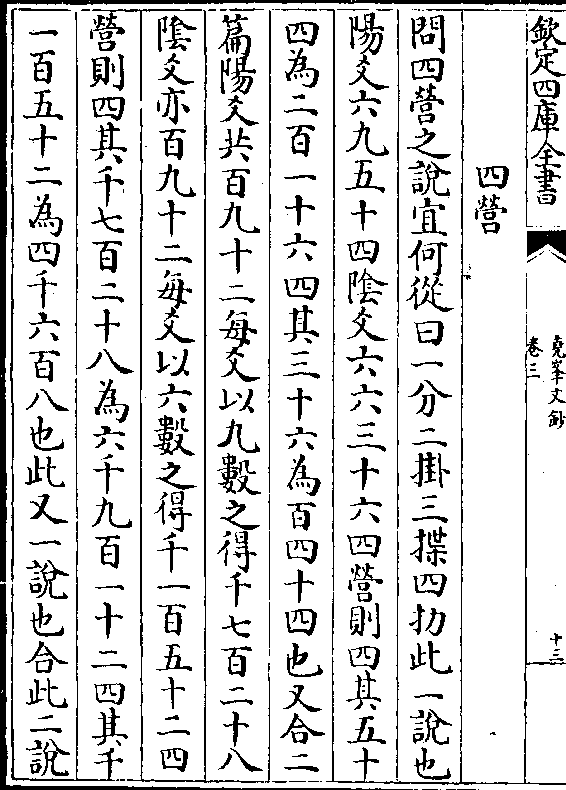 欽定四庫全書
堯峯文鈔
卷三
十三
四營
問四營之說宜何從曰一分二掛三揲四扐此一說也
陽爻六九五十四陰爻六六三十六四營則四其五十
四為二百一十六四其三十六為百四十四也又合二
篇陽爻共百九十二每爻以九數之得千七百二十八
陰爻亦百九十二每爻以六數之得千一百五十二四
營則四其千七百二十八為六千九百一十二四其千
一百五十二為四千六百八也此又一說也合此二說